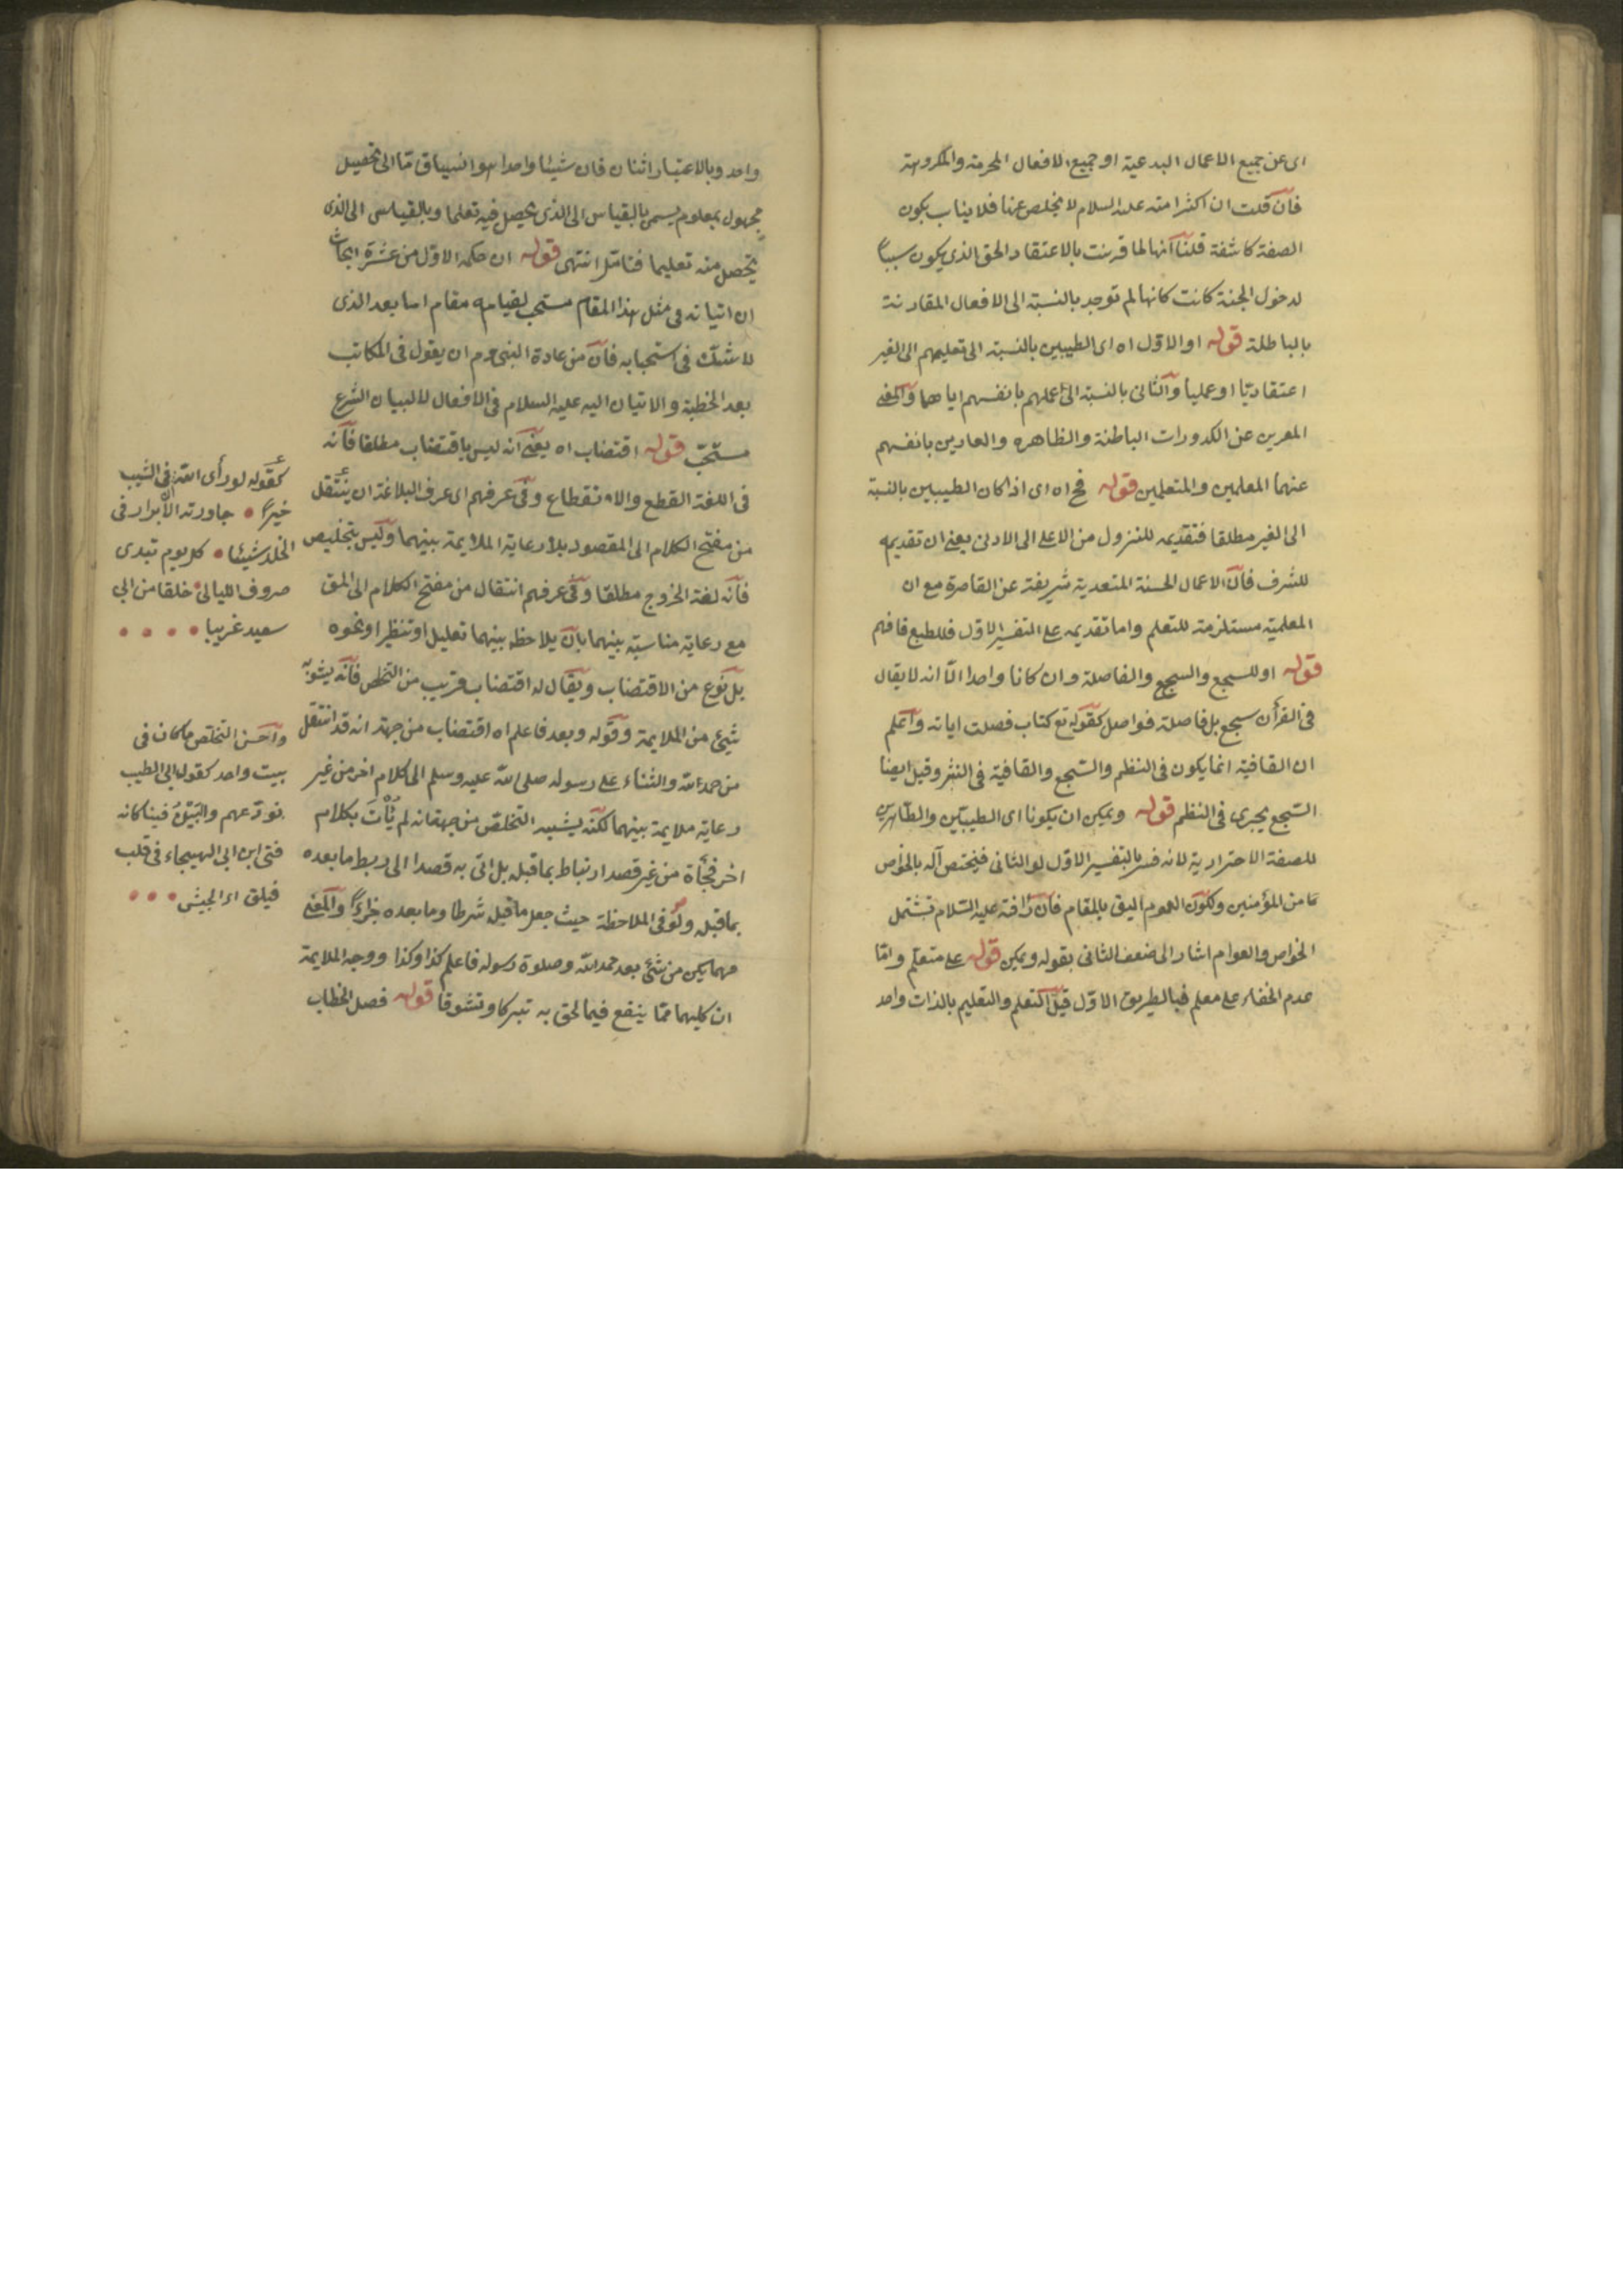 اى عن جميع الاعمال البدعية او جميع الافعال المحرمة والمكروهة
فان قلت ان اكثر امته عليه السلام لا يخلص عنها فلا يناسب بكون
الصفة كاشفة قلنا انها لما قرنت بالاعتقاد الحق الذى يكون سببا
لدخول الجنة كانت كانها لم توجد بالنسبة الى الافعال المقارنة
بالباطلة قوله او الاول اه اى الطيبين بالنسبة الى تعليمهم الى الغير
اعتقاديا او عمليا والثانى بالنسبة الى عملهم بانفسهم اياهما والمعنى
المعرين عن الكدورات الباطنة والظاهرة والعارين بانفسهم
عنهما المعلمين والمتعلمين قوله فح اه اى اذا كان الطيبين بالنسبة
الى الغير مطلقا فتقديمه للنزول من الاعلى الى الادنى يعنى ان تقديمه
للشرف فان الاعمال الحسنة المتعدية شريفة عن القاصرة مع ان
المعلمية مستلزمة للتعلم واما تقديمه على التفسير الاول فللطبع فافهم
قوله او للسجع والسجع والفاصلة وان كانا واحدا الا انه لا يقال
فى القرأن سجع بل فاصلة فواصل كقوله تع كتاب فصلت اياته واعلم
ان القافية انما يكون فى النظم والسجع والقافية فى النثر وقيل ايضا
السجع يجرى فى النظم قوله ويمكن ان يكونا اى الطيبين والطاهرين
للصفة الاحترازية لانه فسر بالتفسير الاول لو الثانى فيختص آله بالخواص
من المؤمنين ولكون العموم اليق بالمقام فان رافة عليه السلام تشتمل
الخواص والعوام اشار الى ضعف الثانى بقوله ويمكن قوله على متعلم واما
عدم الخفاء على معلم فبالطريق الاول قيل التعلم والتعليم بالذات واحد
واحد وبالاعتبار اثنان فان شيئا واحدا هو انسياق ما الى تحصيل
مجهول بمعلوم يسمى بالقياس الى الذى يحصل فيه تعلما وبالقياس الى الذى
يحصل منه تعليما فتامل انتهى قوله ان حكمه الاول من عشرة ابحاث
ان اتيانه فى مثل هذا المقام مستحب لقيامه مقام اما بعد الذى
لا شك فى استحبابه فان من عادة النبى عم ان يقول فى المكاتب
بعد الخطبة والاتيان اليه عليه السلام فى الافعال لا لبيان الشرع
مستحب قوله اقتضاب اه يعنى انه ليس باقتضاب مطلقا فانه
فى اللغة القطع والانقطاع وفى عرفهم اى عرف البلاغة ان ينتقل
من مفتح الكلام الى المقصود بلا رعاية الملايمة بينهما وليس بتخليص
فانه لغة الخروج مطلقا وفى عرفهم انتقال من مفتح الكلام الى المق
مع رعاية مناسبة بينهما بان يلاحظ بينهما تعليل او تنظير او نحوه
بل نوع من الاقتضاب ويقال له اقتضاب قريب من التخلص فانه يشوبه
شيئ من الملايمة وقوله وبعد فاعلم اه اقتضاب من جهة انه قد انتقل
من حمد الله والثناء على رسوله صلى الله عليه وسلم الى كلام اخر من غير
رعاية ملايمة بينهما لكنه يشبيه التخلص من جهة انه لم يأت بكلام
اخر فجأة من غير قصد ارتباط بما قبله بل اتى به قصدا الى ربط ما بعده
بما قبله ولو فى الملاحظة حيث جعل ما قبله شرطا وما بعده جزاءً والمعنى
مهما يكن من شئ بعد حمد الله وصلوة رسوله فاعلم كذا وكذا ووجه الملايمة
ان كليهما مما ينفع فيما لحق به تبركا وتشوقا قوله فصل الخطاب
كقوله لو رأى الله فى الشيب
خيرا جاورته الابرار فى
الخلد شيئا كل يوم تبدى
صروف الليالى خلقا من ابى
سعيد غريبا
واحسن التخلص ما كان فى
بيت واحد كقول ابى الطيب
نودعهم والبين فينا كانه
فتى ابن ابى الهيجاء فى قلب
فيلق اى الجيش